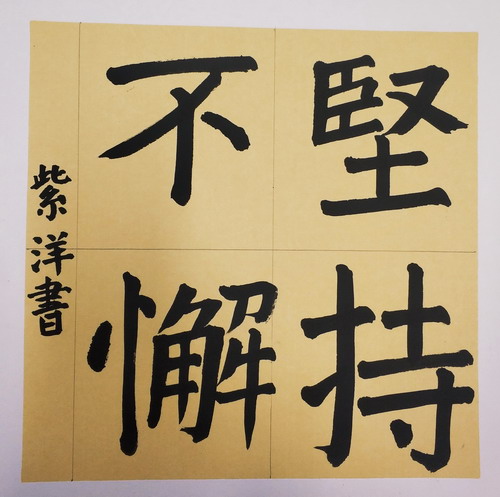 堅持
不懈
紫洋書